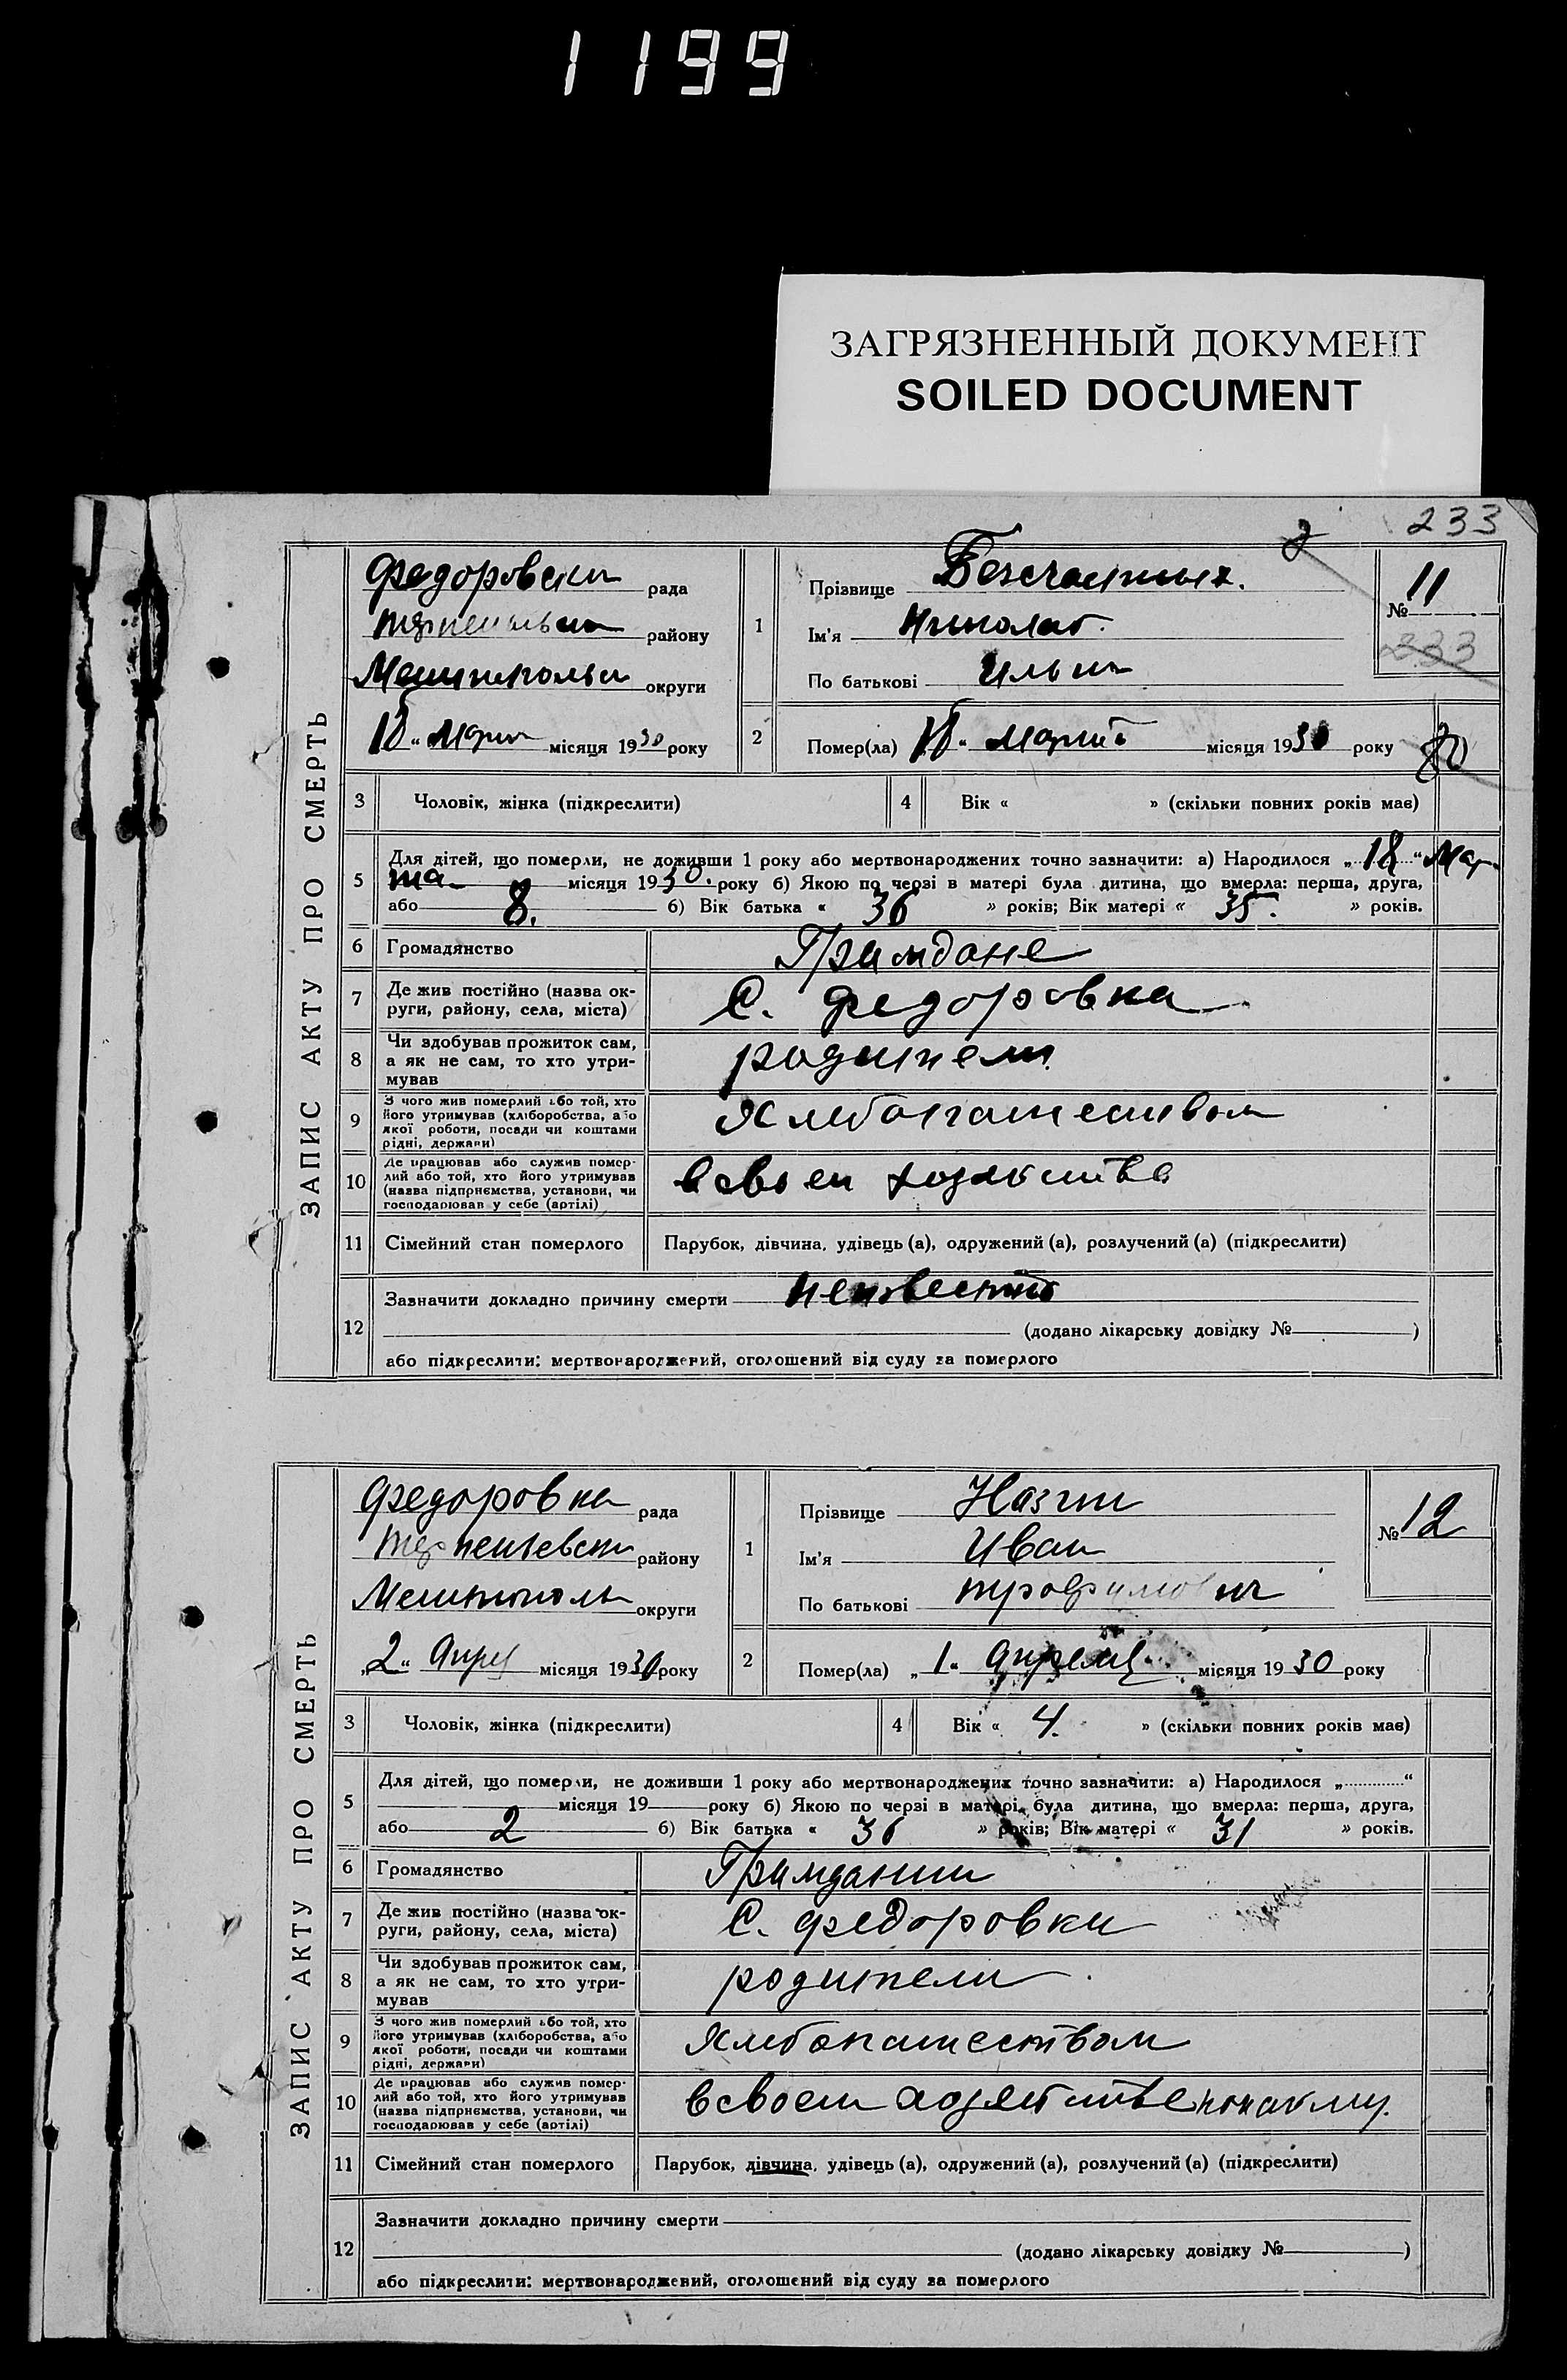 1199
ЗАГРЯЗНЕННЫЙ ДОКУМЕНТ
SOILED DOCUMENT
233
ЗАПИС АКТУ ПРО СМЕРТЬ
Федоровски рада
району
округи
18 " Марта місяця 1930 року
1
Прізвище Безсчастных.
Ім'я Николай.
По батькові Ильич
№ 11
233
2 Помер(ла) 18 " марта місяця 1930 року
80
3 Чоловік, жінка (підкреслити)
4 Вік « » (скільки повних років має)
5 Для дітей, що померли, не доживши 1 року або мертвонароджених точно зазначити: а) Народилося „ 18 “ Мар-
та місяця 1930. року б) Якою по черзі в матері була дитина, що вмерла: перша, друга,
або 8. б) Вік батька « 36 » років; Вік матері « 35. » років.
6 Громадянство
7 Де жив постійно (назва ок-
руги, району, села, міста)
С. Федоровка
8 Чи здобував прожиток сам,
а як не сам, то хто утри-
мував
родители
9 З чого жив померлий або той, хто
його утримував (хліборобства, або
якої роботи, посади чи коштами
рідні, держави)
Хлебопашеством
10 Де працював або служив помер-
лий або той, хто його утримував
(назва підприємства, установи, чи
господарював у себе (артілі)
в своем хозяйстве
11 Сімейний стан померлого Парубок, дівчина, удівець (а), одружений (а), розлучений (а) (підкреслити)
12 Зазначити докладно причину смерти неизвестно
(додано лікарську довідку № )
або підкреслити: мертвонароджений, оголошений від суду за померлого
ЗАПИС АКТУ ПРО СМЕРТЬ
Федоровка рада
району
Мелитополь округи
„2“ Апреля місяця 1930 року
1
Прізвище
Ім'я Иван
По батькові трофимович
№ 12
2 Помер(ла) „ 1 " апреля місяця 1930 року
3 Чоловік, жінка (підкреслити)
4 Вік « 4. » (скільки повних років має)
5 Для дітей, що померли, не доживши 1 року або мертвонароджених точно зазначити: а) Народилося „ “
місяця 19 року б) Якою по черзі в матері була дитина, що вмерла: перша, друга,
або 2 б) Вік батька « 36 » років; Вік матері « 31 » років.
6 Громадянство
7 Де жив постійно (назва ок-
руги, району, села, міста)
С. Федоровки
8 Чи здобував прожиток сам,
а як не сам, то хто утри-
мував
родители
9 З чого жив померлий або той, хто
його утримував (хліборобства, або
якої роботи, посади чи коштами
рідні, держави)
Хлебопашеством
10 Де працював або служив помер-
лий або той, хто його утримував
(назва підприємства, установи, чи
господарював у себе (артілі)
в своем хозяйстве
11 Сімейний стан померлого Парубок, дівчина, удівець (а), одружений (а), розлучений (а) (підкреслити)
12 Зазначити докладно причину смерти
(додано лікарську довідку № )
або підкреслити: мертвонароджений, оголошений від суду за померлого